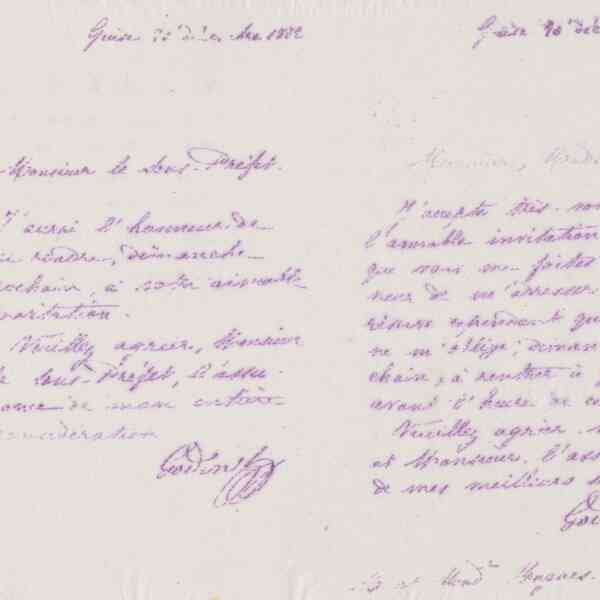 Guise 20 décembre 1882
Monsieur le Sous-Préfet.
J'aurai l'honneur de
rendre, dimanche
prochain, à votre aimable
invitation.
Veuillez agréer, Monsieur
le Sous-Préfet, l'assu-
rance de mon entière
considération
Godin
Guise 20 déc
Monsieur,
J'accepte très vo
l'aimable invitation
que vous me faites
neur de m'adresser
cependant qu
ne m'oblige, diman
chain, à rentrer à
avant l'heure de
Veuillez agréer
et Monsieur, l'ass
de mes meilleurs s
God